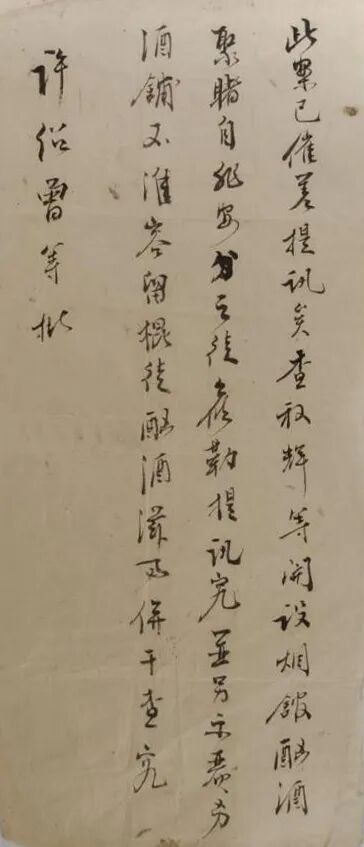 此案已催差提訊矣查叔輝等開設烟館酗酒
聚賭自非安分之徒候勒提訊究並另示嚴
酒鋪不准容留棍徒酗酒滋事併干查究
許紹曾等批